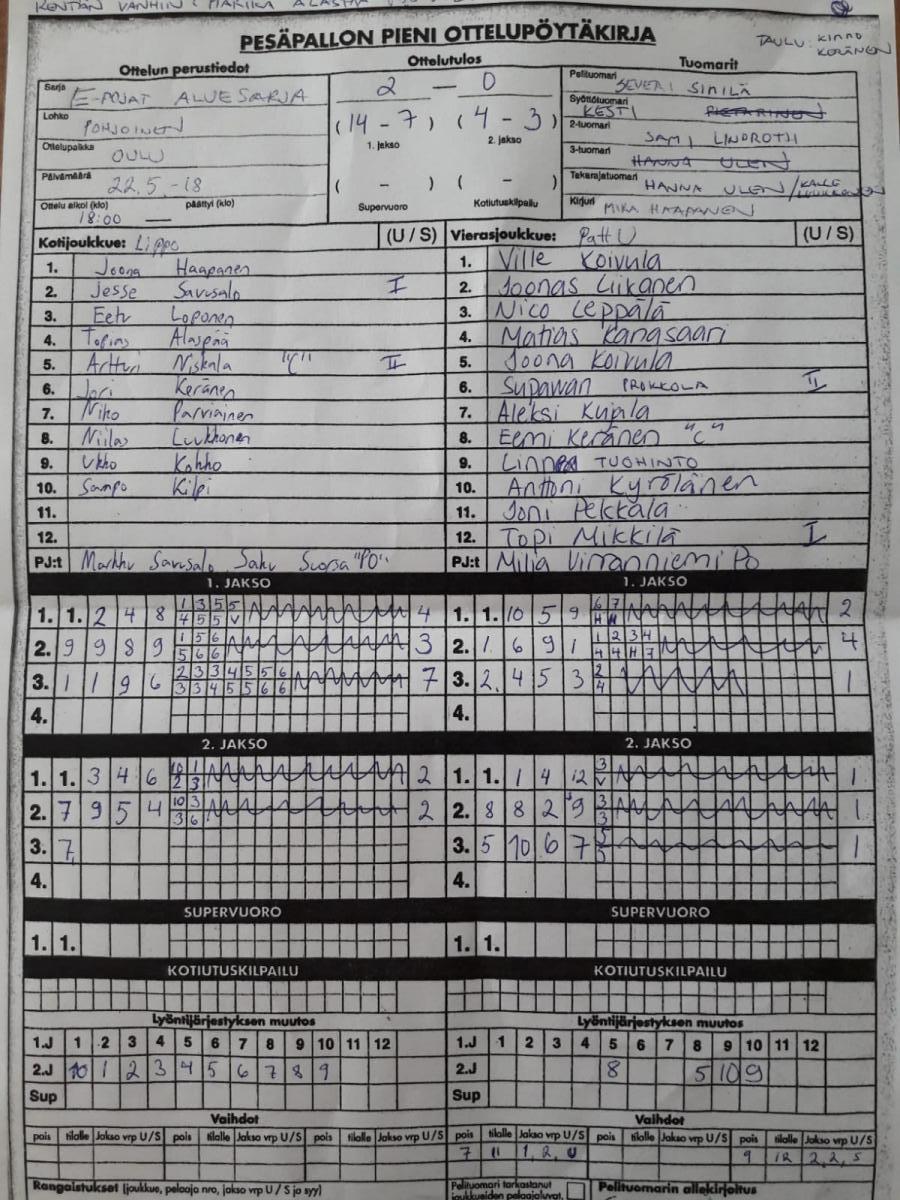 KENTÄN VANHIN: MARIKA
PESÄPALLON PIENI OTTELUPÖYTÄKIRJA
TAULU: KIMMO KERÄNEN
Ottelun perustiedot
Sarja E-POJAT ALUESARJA
Lohko POHJOINEN
Ottelupaikka OULU
Päivämäärä 22.5.-18
Ottelu alkoi (klo) päättyi (klo)
18:00 —
Ottelutulos
2 — 0
(14 - 7) (4 - 3)
1. jakso 2. jakso
( - ) ( - )
Supervuoro Kotiutuskilpailu
Tuomarit
Pelituomari SEVERI SIMILÄ
Syöttötuomari KESTI PIETARINEN
2-tuomari SAMI LINDROTH
3-tuomari HANNA ULEN
Takarajatuomari HANNA ULEN / KALLE LUUKKONEN
Kirjuri MIKA HAAPANEN
Kotijoukkue: Lippo (U / S)
1. Joona Haapanen
2. Jesse Savusalo I
3. Eetu Loponen
4. Topias Alaspää
5. Artturi Niskala "C" II
6. Jori Keränen
7. Niko Parviainen
8. Niilas Luukkonen
9. Ukko Kohho
10. Sampo Kilpi
11.
12.
PJ:t Markku Savusalo Saku Suorsa "PO"
Vierasjoukkue: PattU (U / S)
1. Ville Koivula
2. Joonas Liikanen
3. Nico Leppälä
4. Matias Kangasaari
5. Joona Koivula
6. Supawan PROKKOLA II
7. Aleksi Kujala
8. Eemi Keränen "C"
9. Linnea TUOHINTO
10. Anttoni Kyrölänen
11. Joni Pekkala
12. Topi Mikkilä I
PJ:t Milja Virranniemi Po
1. JAKSO
1. 1. 2 4 8 1 3 5 5 4
4 5 5 V
2. 9 9 8 9 1 5 6 3
5 6 6
3. 1 1 9 6 2 3 3 4 5 5 6 7
3 3 4 5 5 6 6
4.
1. JAKSO
1. 1. 10 5 9 6 7 2
H H
2. 1 6 9 1 1 2 3 4 4
4 4 H 7
3. 2 4 5 3 2 1
4
4.
2. JAKSO
1. 1. 3 4 6 10 1 2
2 3
2. 7 9 5 4 10 3 2
3 6
3. 7
4.
2. JAKSO
1. 1. 1 4 12 3 1
V
2. 8 8 2 9 3 1
3
3. 5 10 6 7 5 1
5
4.
SUPERVUORO
1. 1.
SUPERVUORO
1. 1.
KOTIUTUSKILPAILU
KOTIUTUSKILPAILU
Lyöntijärjestyksen muutos
1.J 1 2 3 4 5 6 7 8 9 10 11 12
2.J 10 1 2 3 4 5 6 7 8 9
Sup
Lyöntijärjestyksen muutos
1.J 1 2 3 4 5 6 7 8 9 10 11 12
2.J 8 5 10 9
Sup
Vaihdot
pois tilalle Jakso vrp U/S pois tilalle Jakso vrp U/S pois tilalle Jakso vrp U/S
Vaihdot
pois tilalle Jakso vrp U/S pois tilalle Jakso vrp U/S pois tilalle Jakso vrp U/S
7 11 1, 2, U 9 12 2, 2, S
Rangaistukset (joukkue, pelaaja nro, jakso vrp U / S ja syy)
Pelituomari tarkastanut
joukkueiden pelaajaluvat.
Pelituomarin allekirjoitus